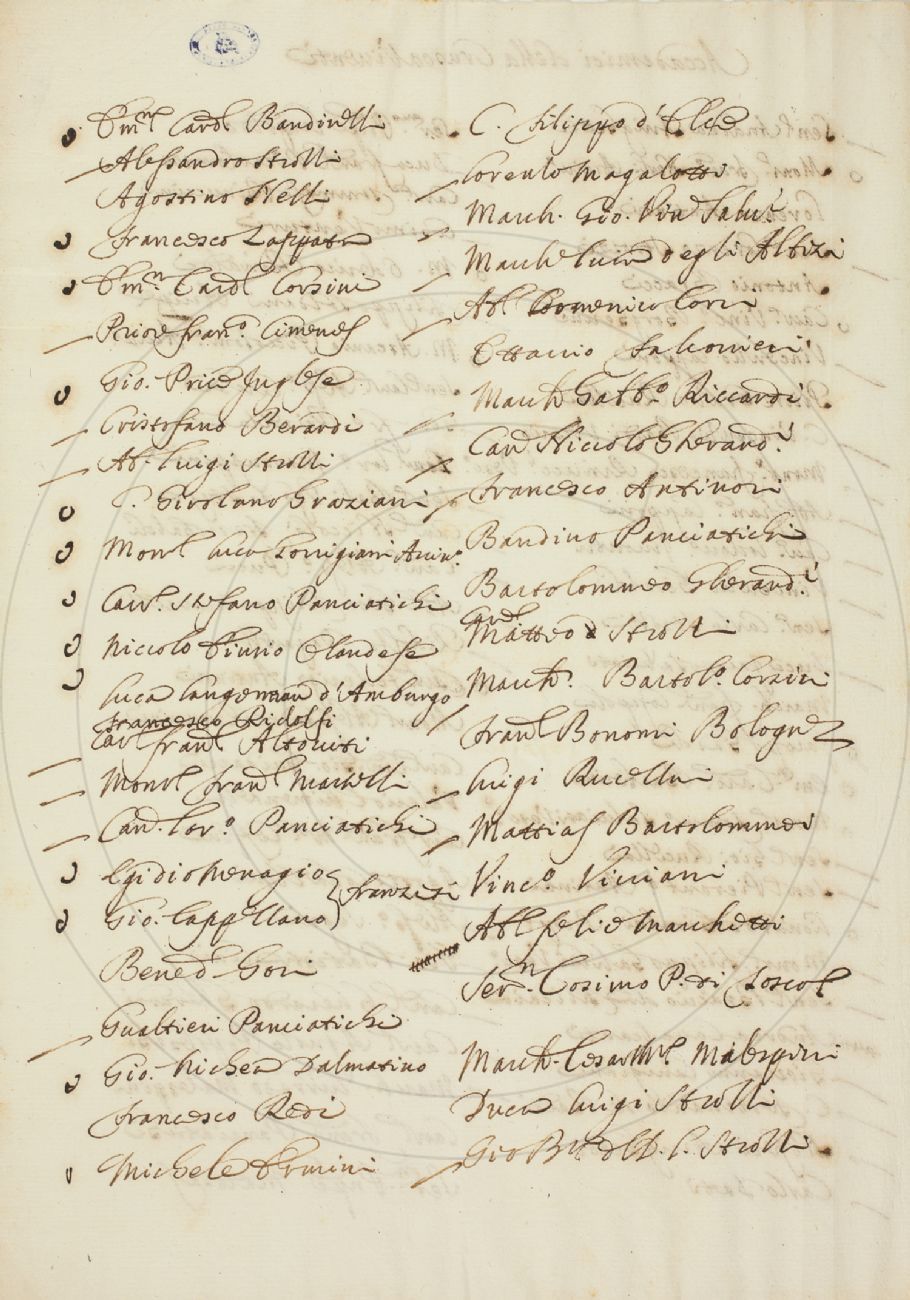 Em.mo Card.l Bandinelli
Alessandro Strozzi
Agostino Nelli
Francesco
Em.mo Card.l Corsini
Priore Fran.o Cimenes
Gio. Price Inglese
Cristofano Berardi
Ab. Luigi Strozzi
C. Girolamo Graziani
Mon.l Luca
Cav.l Stefano Panciatichi
Niccolò Einsio Olandese
Luca Langerman d'Amburgo
Francesco Ridolfi
Cav.l Fran.l Altoviti
Mons.l Fran.l Martelli
Can. Lor.o Panciatichi
Egidio Menagio
Gio. Cappellano
Franzesi
Bened. Gori
Gualtieri Panciatichi
Gio. Dalmatino
Francesco Redi
Michele Ermini
C. Filippo d'Elce
Lorenzo Magalotti
March. Gio. Vin. Salv.i
March. Luca degli Albizi
Ab. Domenico Corsi
Ottavio Falconieri
March. Gabb.o Riccardi
Can. Niccolò Gherard.i
Francesco Antinori
Bandino Panciatichi
Bartolommeo Gherard.i
Matteo Strozzi
March. Bartol.o Corsini
Fran.l Bonomi Bologn
Luigi Rucellai
Mattias Bartolommei
Vinc.o Viviani
Ab. Felice Marchetti
Ser.mo Cosimo P. di Toscol
March. Malespini
Duca Luigi Strozzi
Gio Strozzi